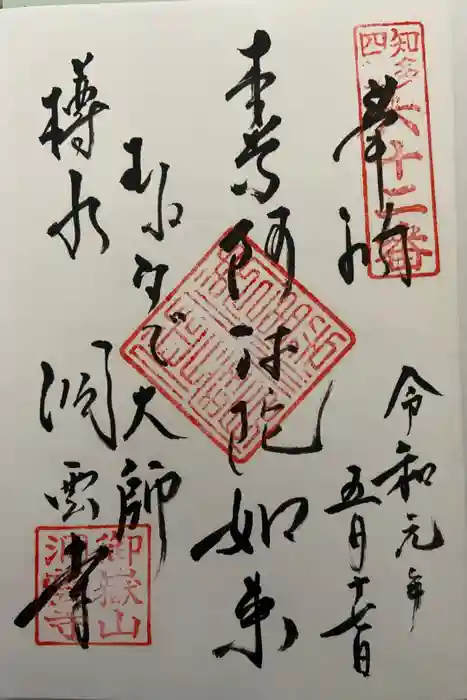 知多
四
六十二番
奉拝
令和元年
五月十七日
本尊阿弥陀如来
大師
樽水 洞雲寺
御嶽山
洞雲寺